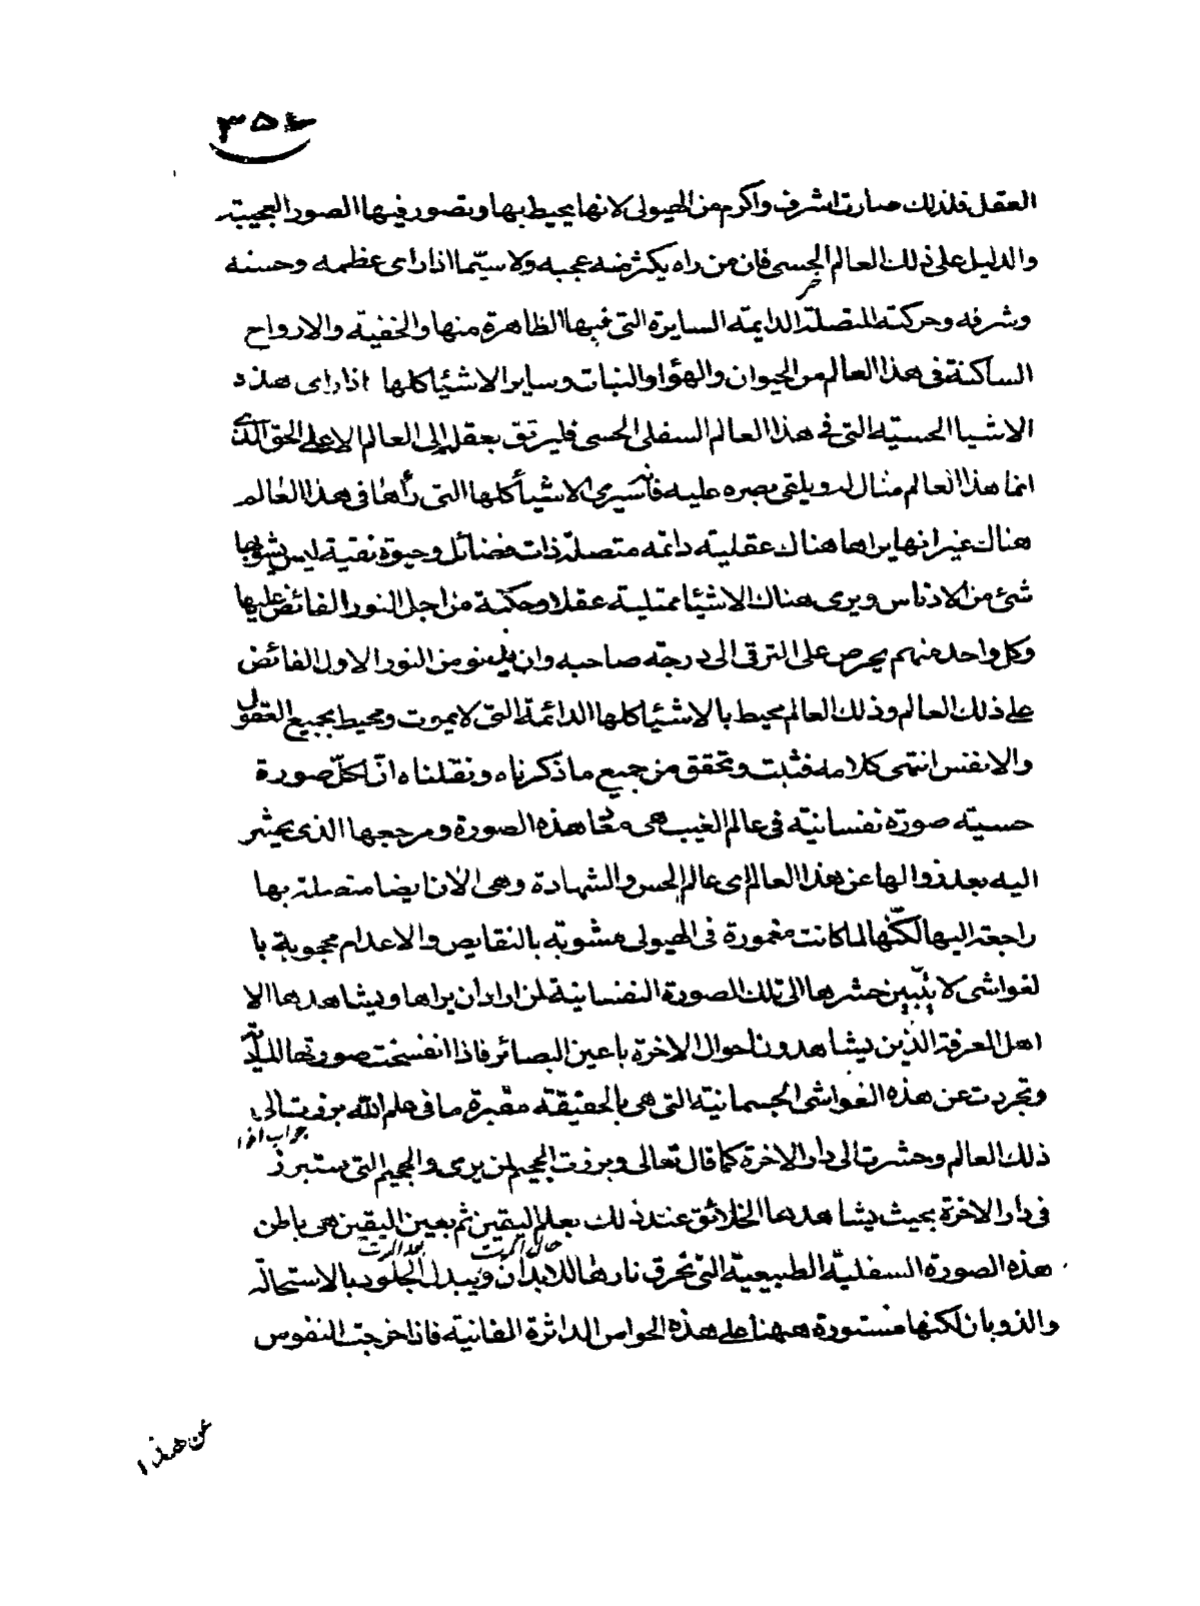 ٣٥٤
العقل فلذلك صارت اشرف واكرم من الهيولى لانها يحيط بها وتصور فيها الصور العجيبة
والدليل على ذلك العالم الحسى فان من راه يكثر منه عجبه ولا سيّما اذا راى عظمه وحسنه
وشرفه وحركته المتصلة الدايمة السايرة التى فيها الظاهرة منها والخفية والارواح
الساكنة فى هذا العالم من الحيوان والهؤا والنبات وساير الاشئا كلها اذا راى هذه
الاشيا الحسيّه التى فى هذا العالم السفلى الحسى فليرتق بعقله الى العالم الاعلى الحق الذى
انما هذا العالم مثال له ويلقى بصره عليه فانه سيرى الاشئا كلها التى رأها فى هذا العالم
هناك غير انها يراها هناك عقلية دائمة متصلة ذات فضائل وحيوة نقية ليس يشوبها
شئ من الادناس ويرى هناك الاشئا ممتلية عقلا وحكمة من اجل النور الفائض عليها
وكل واحد منهم يحرص على الترقى الى درجة صاحبه وان يدنو من النور الاول الفائض
على ذلك العالم وذلك العالم محيط بالاشئا كلها الدائمة التى لا يموت ومحيط بجميع العقول
والانفس انتهى كلامه فثبت وتحقق من جميع ما ذكرناه ونقلناه انّ لكلّ صورة
حسية صورة نفسانية فى عالم الغيب هى معا هذه الصورة ومرجعها الذى يحشر
اليه بعد زوالها عن هذا العالم اى عالم الحس والشهادة وهى الان ايضا متصلة بها
راجعة اليها لكنّها لما كانت مغمورة فى الهيولى مشوبة بالنقايص والاعدام محجوبة با
لغواشى لا يتبيّن حشرها الى تلك الصورة النفسانية لمن اراد ان يراها ويشاهدها الا
اهل المعرفة الذين يشاهدون احوال الاخرة باعين البصائر فاذا انفسخت صورتها المادّيّة
وتجردت عن هذه الغواشى الجسمانية التى هى بالحقيقة مقبرة ما فى علم الله برزت الى
جواب اذا
ذلك العالم وحشرت الى دار الاخرة كما قال تعالى وبرزت الجحيم لمن يرى والجحيم التى ستبرز
فى دار الاخرة بحيث يشاهدها الخلائق عند ذلك بعلم اليقين ثم بعين اليقين هى باطن
حال الموت بعد الموت
هذه الصورة السفلية الطبيعية التى تحرق نارها للابدان ويبدل الجلود بالاستحالة
والذوبان لكنها مستورة ههنا على هذه الحواس الداثرة الفانية فاذا خرجت النفوس
عن هذا